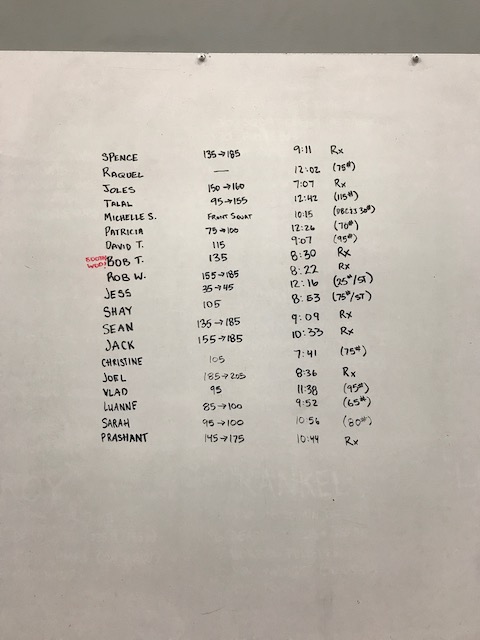 SPENCE 135→185 9:11 Rx
RAQUEL — 12:02 (75#)
JOLES 150→160 7:07 Rx
TALAL 95→155 12:42 (115#)
MICHELLE S. FRONT SQUAT 10:15 (DBC23 30#)
PATRICIA 75→100 12:26 (70#)
DAVID T. 115 9:07 (95#)
WOD! BOB T. 135 8:30 Rx
ROB W. 155→185 8:22 Rx
JESS 35→45 12:16 (25#/ST)
SHAY 105 8:53 (75#/ST)
SEAN 135→185 9:09 Rx
JACK 155→185 10:33 Rx
CHRISTINE 105 7:41 (75#)
JOEL 185→205 8:36 Rx
VLAD 95 11:38 (95#)
LUANNE 85→100 9:52 (65#)
SARAH 95→100 10:56 (80#)
PRASHANT 145→175 10:44 Rx